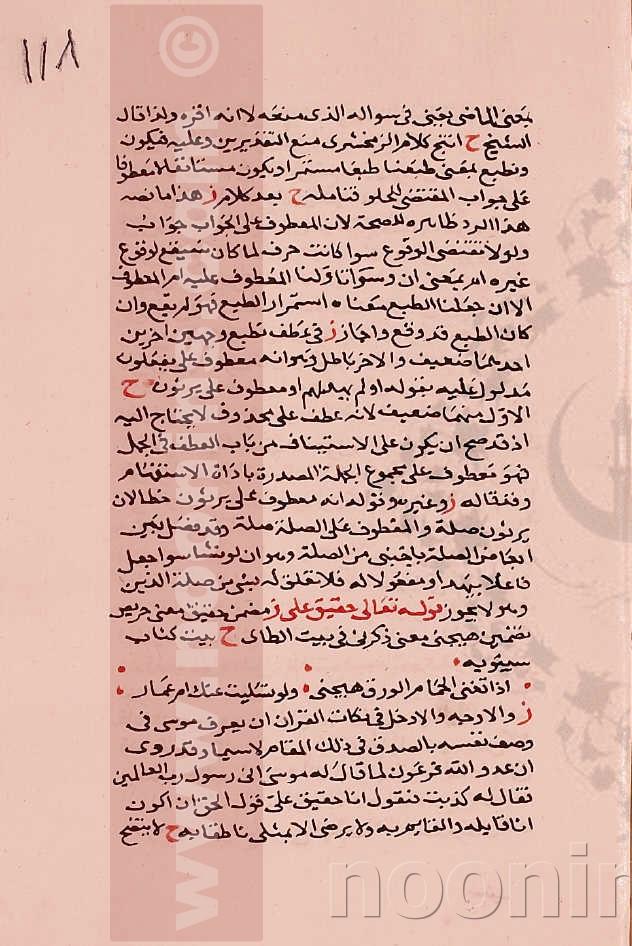 ١١٨
بمعنى الماضى يعنى فى سواله الذى منعه لا انه اقره ولذا قال
الشيخ ح انتج كلام الزمخشرى منع التقديرين وعليه فيكون
ونطبع بمعنى طبعنا طبعا مستمرا ويكون مستانفا لا معطوفا
على جواب المقتضى للحلو فتامله ح بعد كلام ز هذا ما نصه
هذا الرد ظاهره الصحة لان المعطوف على الجواب جواب
ولو لا تقتضى الوقوع سوا كانت حرف لما كان سيقع لوقوع
غيره ام بمعنى ان وسوا تاولنا المعطوف عليه ام المعطوف
الا ان جعلنا الطبع معناه استمرار الطبع فهو لم يقع وان
كان الطبع قد وقع واجاز ز فى عطف نطبع وجهين اخرين
احدهما ضعيف والاخر باطل وهو انه معطوف على يغفلون
مدلول عليه بقوله اولم يهد لهم او معطوف على يرثون ح
الاول منهما ضعيف لانه عطف على محذوف لا يحتاج اليه
اذ قد صح ان يكون على الاستيناف من باب العطف فى الجمل
فهو معطوف على مجموع الجملة المصدرة باداة الاستفهام
وقد قاله ز وغيره وقوله انه معطوف على يرثون خطا لان
يرثون صلة والمعطوف على الصلة صلة وقد فصل بين
ابعاض الصلة باجنبى من الصلة وهو ان لو نشا سوا جعل
فاعلا بيهد او مفعولا له فلا تعلق له بشى من صلة الذين
وهو لا يجوز قوله تعالى حقيق على ز مضمن حقيق معنى حريص
تضمين هيجنى معنى ذكرنى فى بيت الطاى ح بيت كتاب
سيبويه
اذا تغنى الحمام الورق هيجنى ولو تسليت عنك ام عمار
ز والاوجه والادخل فى نكات القران ان يعرف موسى فى
وصف نفسه بالصدق فى ذلك المقام لا سيما وقد روى
ان عدو الله فرعون لما قال له موسى انى رسول رب العالمين
فقال له كذبت فيقول انا حقيق على قول الحق ان اكون
انا قايله والقايم به ولا يرضى الا بمثلى ناطقا به ح لا يتضح
www.noonir
noonir